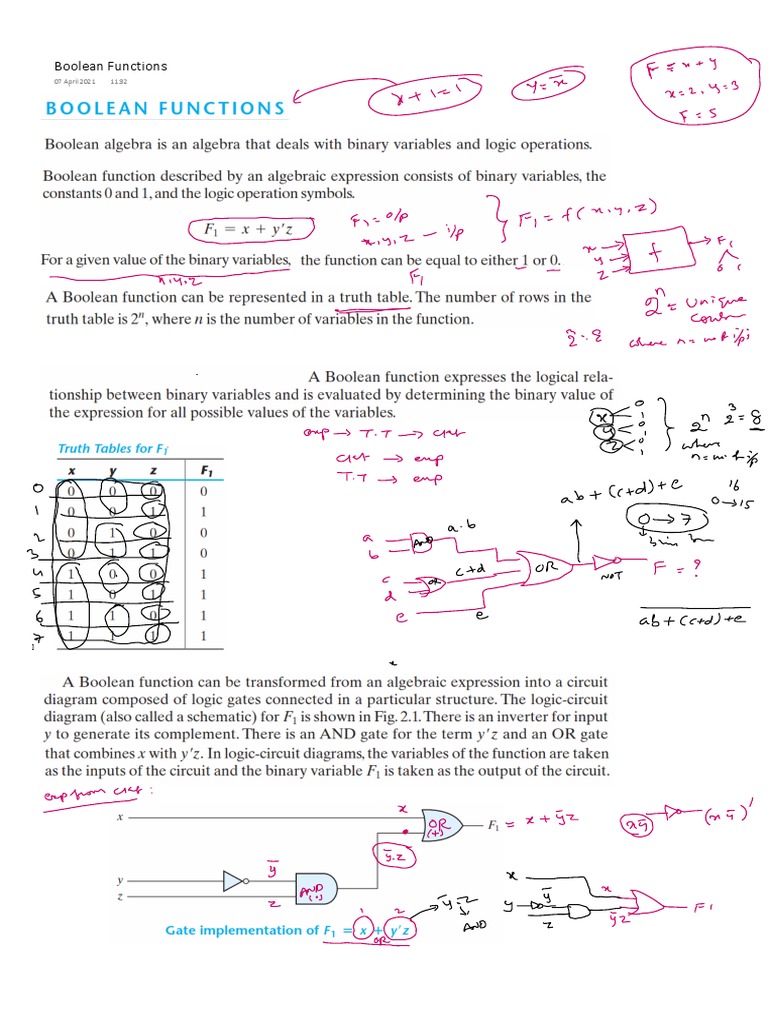 Boolean Functions
07 April 2021 11:32
BOOLEAN FUNCTIONS
x + 1 = 1
y = x̅
F = x + y
x = 2, y = 3
F = 5
Boolean algebra is an algebra that deals with binary variables and logic operations.
Boolean function described by an algebraic expression consists of binary variables, the
constants 0 and 1, and the logic operation symbols.
F₁ = x + y′z
F₁ = o/p
x, y, z – i/p
F₁ = f(x, y, z)
x
y
z
f
F₁
0 1
For a given value of the binary variables, the function can be equal to either 1 or 0.
x, y, z
F₁
A Boolean function can be represented in a truth table. The number of rows in the
truth table is 2ⁿ, where n is the number of variables in the function.
2ⁿ = unique
where n = no of i/p
A Boolean function expresses the logical rela-
tionship between binary variables and is evaluated by determining the binary value of
the expression for all possible values of the variables.
exp → T.T → ckt
ckt → exp
T.T → exp
x 0 1
y 0 1
z 0 1
2ⁿ 2³ = 8
where
n = no of i/p
Truth Tables for F₁
x y z F₁
0 0 0 0 0
1 0 0 1 1
2 0 1 0 0
3 0 1 1 0
4 1 0 0 1
5 1 0 1 1
6 1 1 0 1
7 1 1 1 1
16
0 → 15
ab + (c+d) + e
0 → 7
a
b
AND
a·b
c
d
OR
c+d
e
e
OR
NOT
F = ?
ab + (c+d) + e
A Boolean function can be transformed from an algebraic expression into a circuit
diagram composed of logic gates connected in a particular structure. The logic-circuit
diagram (also called a schematic) for F₁ is shown in Fig. 2.1. There is an inverter for input
y to generate its complement. There is an AND gate for the term y′z and an OR gate
that combines x with y′z. In logic-circuit diagrams, the variables of the function are taken
as the inputs of the circuit and the binary variable F₁ is taken as the output of the circuit.
exp from ckt :
x
x
OR
(+)
F₁ = x + y̅z
y̅·z
y
z
y̅
z
AND
(·)
xy̅
(xy̅)′
x
y
y̅
z
x
y̅z
F₁
1 2
Gate implementation of F₁ = x + y′z
OR
y̅·z
AND